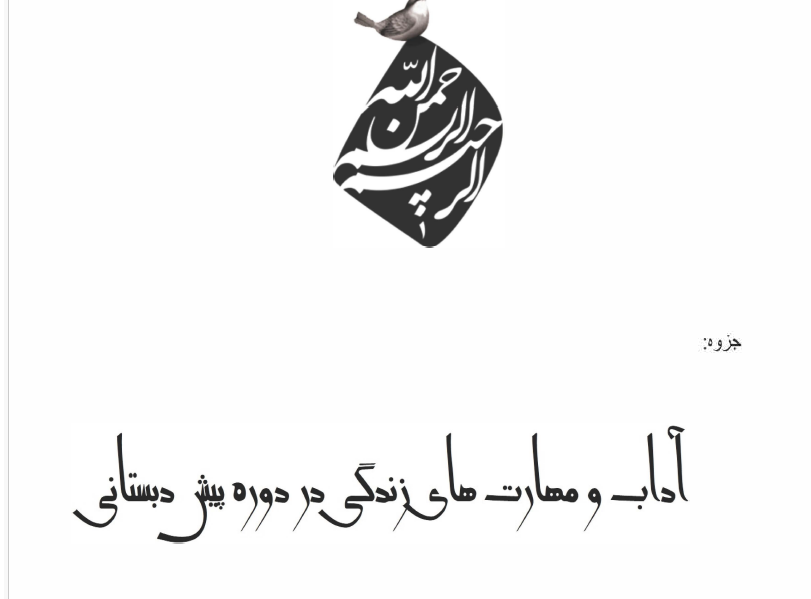 بسم الله الرحمن الرحیم
جزوه:
آداب و مهارت های زندگی در دوره پیش دبستانی